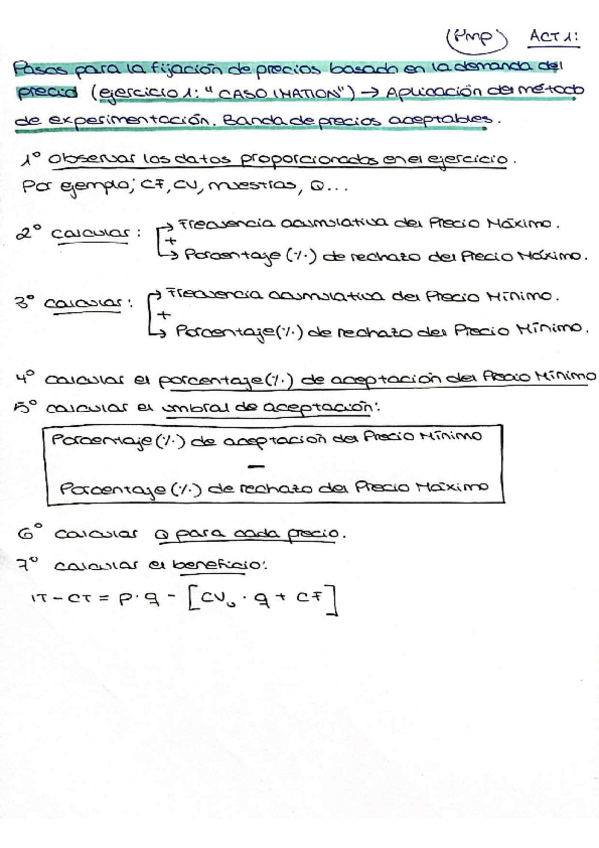 (PMP) ACT 1:
Pasos para la fijación de precios basado en la demanda del
precio (ejercicio 1: "CASO IMATION") → Aplicación del método
de experimentación. Banda de precios aceptables.
1º Observar los datos proporcionados en el ejercicio.
Por ejemplo; CF, CV, muestras, Q...
2º Calcular: → Frecuencia acumulativa del Precio Máximo.
+
→ Porcentaje (%) de rechazo del Precio Máximo.
3º Calcular: → Frecuencia acumulativa del Precio Mínimo.
+
→ Porcentaje (%) de rechazo del Precio Mínimo.
4º Calcular el porcentaje (%) de aceptación del Precio Mínimo
5º Calcular el umbral de aceptación:
Porcentaje (%) de aceptación del Precio Mínimo
—
Porcentaje (%) de rechazo del Precio Máximo
6º Calcular Q para cada precio.
7º Calcular el beneficio:
IT - CT = P · q - [CVu · q + CF]